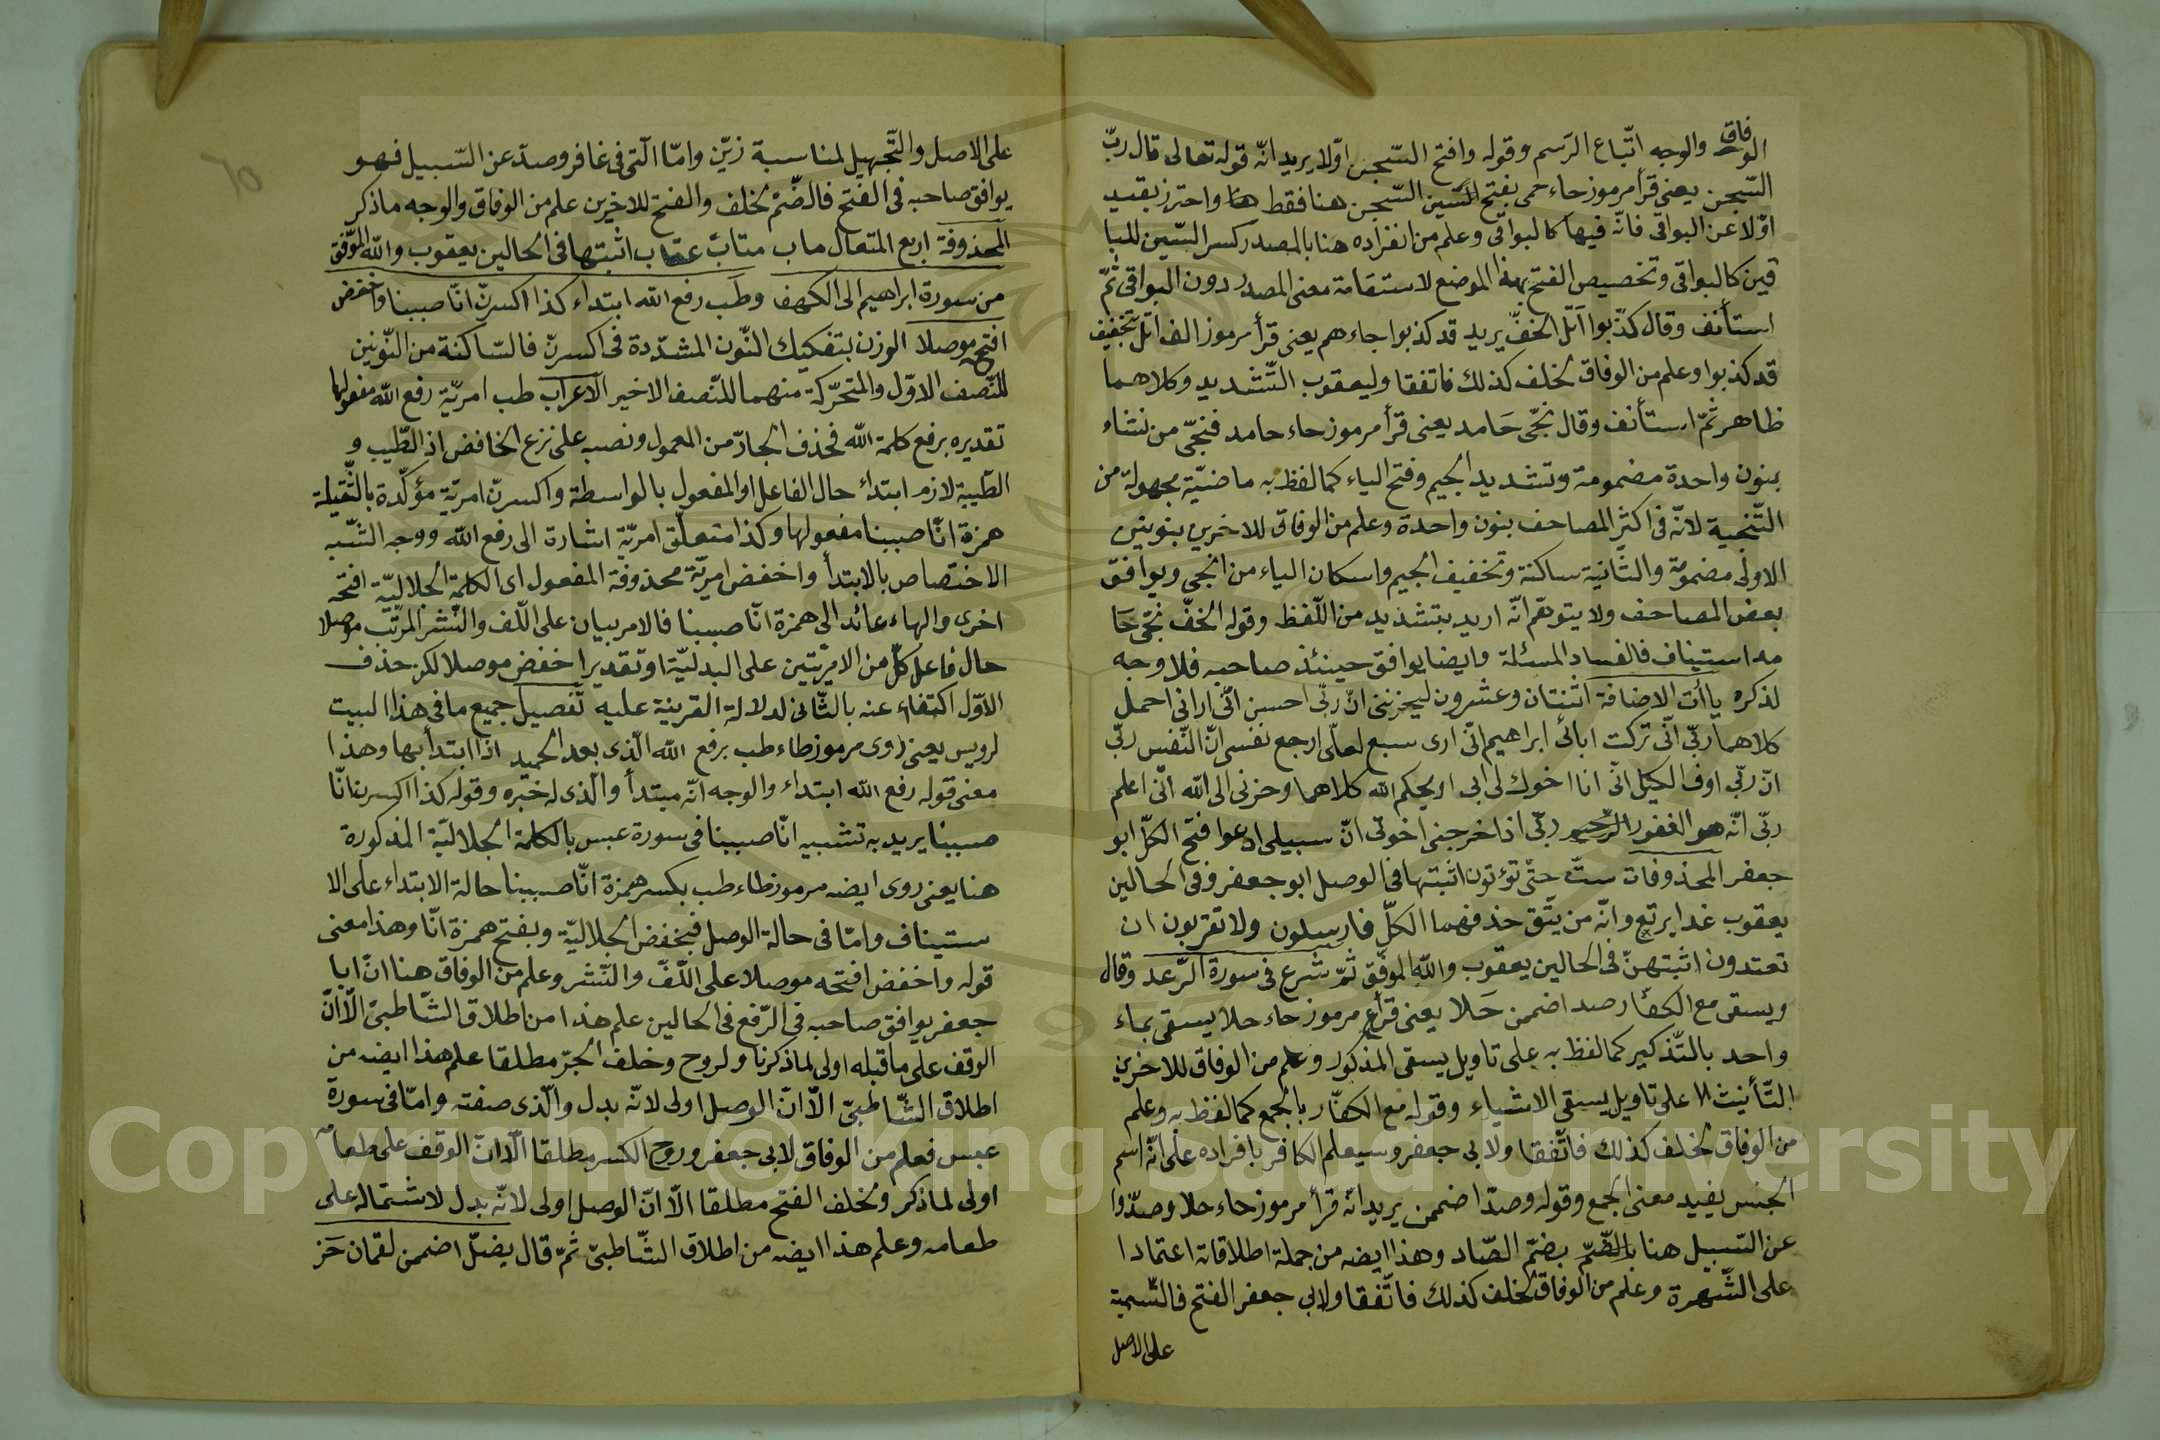 الوفاق والوجه اتّباع الرّسم وقوله وافتح السّجن اوّلا يريد انّه قوله تعالى قال ربّ
السّجن يعنى قرأ مرموز حاء حمى بفتح السّين السّجن هنا فقط واحترز بقيد
اوّلا عن البواقى فانّه فيها كالبواقى وعلم من انفراده هنا بالمصدر كسر السّين للبا
قين كالبواقى وتخصيص الفتح بهذا الموضع لاستقامة معنى المصدر دون البواقى ثمّ
استأنف وقال كذّبوا اتل الخفّ يريد قد كذبوا جاءهم يعنى قرأ مرموز الف اتل بتخفيف
قد كذبوا وعلم من الوفاق لخلف كذلك فاتفقا وليعقوب التّشديد وكلاهما
ظاهر ثمّ استأنف وقال نجّى حَامد يعنى قرأ مرموز حاء حامد فنجّى من نشاء
بنون واحدة مضمومة وتشديد الجيم وفتح الياء كما لفظ به ماضيّة مجهولة من
التّنجية لانّه فى اكثر المصاحف بنون واحدة وعلم من الوفاق للاخرين بنونين
الاولى مضمومة والثّانية ساكنة وتخفيف الجيم واسكان الياء من انجى ويوافق
بعض المصاحف ولا يتوهّم انّه اريد بتشديد من اللّفظ وقوله الخفّ نجّى حَا
مد استيناف فالفساد المسئلة وايضا يوافق حينئذ صاحبه فلا وجه
لذكره ياأت الاضافة اثنتان وعشرون ليحزننى انّ ربّى احسن انّى ارانى احمل
كلاهما ربّى انّى تركت ابائى ابراهيم انّى ارى سبع لعلّى ارجع نفسى انّ النّفس ربّى
انّ ربّى اوف الكيل انّى انا اخوك لى ابى او يحكم الله كلاهما وحزنى الى الله انّى اعلم
ربّى انّه هو الغفور الرّحيم ربّى اذ اخرجنى اخوتى انّ سبيلى ادعوا فتح الكلّ ابو
جعفر المحذوفات ستّ حتّى تؤتون اثبتها فى الوصل ابو جعفر وفى الحالين
يعقوب غدا يرتع وانّه من يتّق حذفهما الكلّ فارسلون ولا تقربون ان
تعتدون اثبتهنّ فى الحالين يعقوب والله الموفّق ثمّ شرع فى سورة الرّعد وقال
ويسقى مع الكفّار صد اضمن حَلا يعنى قرأ مرموز حاء حلا يسقى بماء
واحد بالتّذكير كما لفظ به على تاويل يسقى المذكور وعلم من الوفاق للاخرين
التّأنيث على تاويل يسقى الاشياء وقوله مع الكفّار بالجمع كما لفظ به وعلم
من الوفاق لخلف كذلك فاتّفقا ولابى جعفر وسيعلم الكافر بافراده على انّه اسم
الجنس يفيد معنى الجمع وقوله وصدّ اضممن يريد انّه قرأ مرموز حاء حلا وصدّوا
عن السبيل هنا بالضّمّ بضمّ الصّاد وهذا ايضه من جملة اطلاقاته اعتمادا
على الشّهرة وعلم من الوفاق لخلف كذلك فاتّفقا ولابى جعفر الفتح فالتّسمية
على الاصل
على الاصل والتّجهيل لمناسبة زيّن وامّا الّتى فى غافر وصدّ عن السّبيل فهو
يوافق صاحبه فى الفتح فالضّمّ لخلف والفتح للاخرين علم من الوفاق والوجه ما ذكر
المحذوفة اربع المتعال ماب متاب عقاب اثبتها فى الحالين يعقوب والله الموّفق
من سورة ابراهيم الى الكهف وطَب رفع الله ابتداء كذا اكسرنّ انّا صببنا واخفض
افتحه موصلا الوزن بتفكيك النّون المشدّدة فى اكسرنّ فالسّاكنة من النّونين
للنّصف الاوّل والمتحرّكة منهما للنّصف الاخير الاعراب طب امريّة رفع الله مفعولها
تقديره برفع كلمة الله فحذف الجارّ من المعمول ونصبه على نزع الخافض اذ الطّيب و
الطّيبة لازم ابتداء حال الفاعل او المفعول بالواسطة واكسرنّ امريّة مؤكّدة بالثّقيلة
همزة انّا صببنا مفعولها وكذا متعلّق امريّة اشارة الى رفع الله ووجه الشّبه
الاختصاص بالابتدأ واخفض امريّة محذوفة المفعول اى الكلمة الجلاليّة افتحه
اخرى والهاء عائد الى همزة انّا صببنا فالامر بيان على اللّف والنّشر المرتّب موصلا
حال فاعل كلّ من الامريّتين على البدليّة او تقدير اخفض موصلا لكن حذف
الاوّل اكتفاء عنه بالثّانى لدلالة القرينة عليه تفصيل جميع ما فى هذا البيت
لرويس يعنى روى مرموز طاء طب برفع الله الّذى بعد الحميد اذا ابتدأ بها وهذا
معنى قوله رفع الله ابتداء والوجه انّه مبتدأ والّذى له خبره وقوله كذا اكسرن انّا
صببنا يريد به تشبيه انّا صببنا فى سورة عبس بالكلمة الجلاليّة المذكورة
هنا يعنى روى ايضه مرموز طاء طب بكسر همزة انّا صببنا حالة الابتداء على الا
ستيناف وامّا فى حالة الوصل فبخفض الجلاليّة وبفتح همزة انّا وهذا معنى
قوله واخفض افتحه موصلا على اللّفّ والنّشر وعلم من الوفاق هنا انّ ابا
جعفر يوافق صاحبه فى الرّفع فى الحالين علم هذا من اطلاق الشّاطبىّ الّا انّ
الوقف على ما قبله اولى لما ذكرنا ولروح وخلف الجرّ مطلقا علم هذا ايضه من
اطلاق الشّاطبىّ الّا انّ الوصل اولى لانّه بدل والّذى صفته وامّا فى سورة
عبس فعلم من الوفاق لابى جعفر وروح الكسر مطلقا الّا انّ الوقف على طعامه
اولى لما ذكر ولخلف الفتح مطلقا الّا انّ الوصل اولى لانّه بدل لاشتماله على
طعامه وعلم هذا ايضه من اطلاق الشّاطبىّ ثمّ قال يضلّ اضممن لقمان حَز
٦٥
Copyright © King Saud University